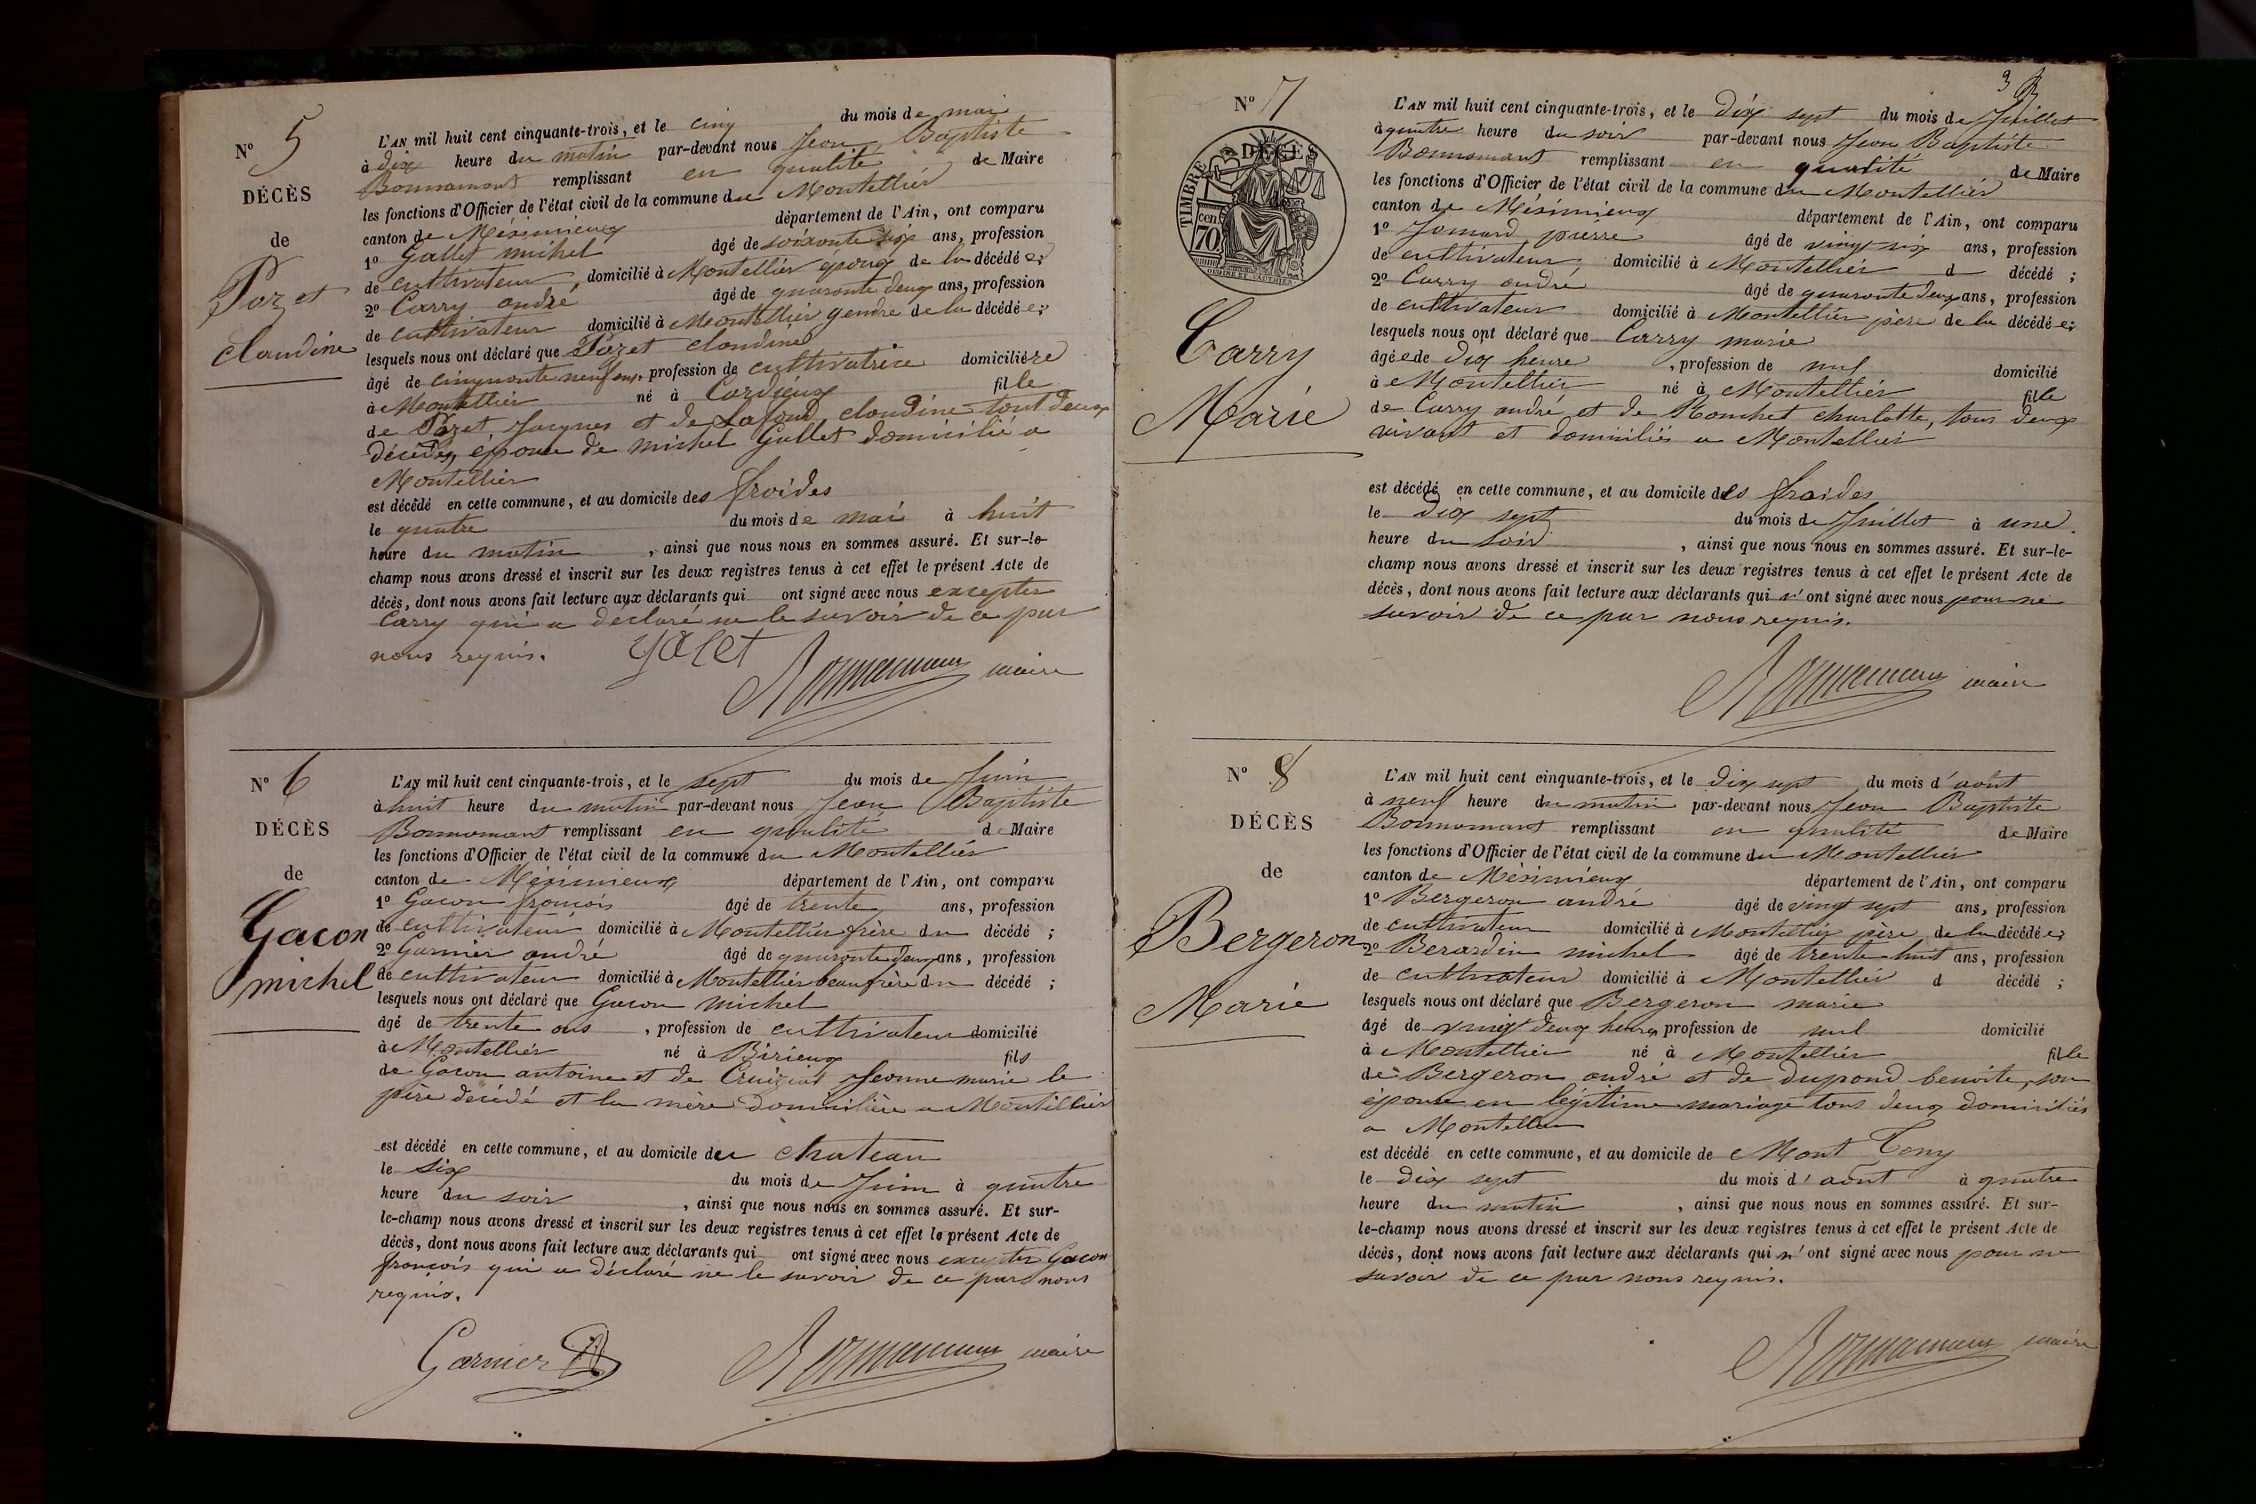 N° 5
DÉCÈS
de
Pozet
claudine
L'AN mil huit cent cinquante-trois, et le cinq du mois de mai
à dix heure du matin par-devant nous Jean Baptiste
Bonnamant remplissant en qualité de Maire
les fonctions d'Officier de l'état civil de la commune du Montellier
canton de Méximieux département de l'Ain, ont comparu
1° Gallet michel âgé de soixante six ans, profession
de cultivateur, domicilié à Montellier epoux de la décédée;
2° Carry andré âgé de quaronte deux ans, profession
de cultivateur domicilié à Montellier gendre de la décédée;
lesquels nous ont déclaré que Pozet claudine
âgé de cinquonte neuf ans, profession de cultivatrice domiciliére
à Montellier né à Cordieux fille
de Pozet Jacques et de Lafond claudine tout deux
décédés, épouse de michel Gallet domicilié a
Montellier
est décédé en cette commune, et au domicile des froides
le quatre du mois de mai à huit
heure du matin, ainsi que nous nous en sommes assuré. Et sur-le-
champ nous avons dressé et inscrit sur les deux registres tenus à cet effet le présent Acte de
décès, dont nous avons fait lecture aux déclarants qui ont signé avec nous excepter
Carry qui a déclaré ne le savoir de ce par
nous requis.
maire
N° 6
DÉCÈS
de
Gacon
michel
L'AN mil huit cent cinquante-trois, et le sept du mois de Juin
à huit heure du matin par-devant nous Jean Baptiste
Bonnamant remplissant en qualité de Maire
les fonctions d'Officier de l'état civil de la commune du Montellier
canton de Méximieux département de l'Ain, ont comparu
1° Gacon françois âgé de trente ans, profession
de cultivateur domicilié à Montellier frère du décédé;
2° Garnier andré âgé de quaronte deux ans, profession
de cultivateur domicilié à Montellier beaufrère du décédé;
lesquels nous ont déclaré que Gacon michel
âgé de trente ans, profession de cultivateur domicilié
à Montellier né à Birieux fils
de Gacon antoine et de Jeanne marie le
père décédé et la mère domicilière a Montellier
est décédé en cette commune, et au domicile du chateau
le six du mois de Juin à quatre
heure du soir, ainsi que nous nous en sommes assuré. Et sur-
le-champ nous avons dressé et inscrit sur les deux registres tenus à cet effet le présent Acte de
décès, dont nous avons fait lecture aux déclarants qui ont signé avec nous excepter Gacon
françois qui a déclaré ne le savoir de ce par nous
requis.
Garnier
maire
3
N° 7
TIMBRE
DÉCÈS
cen
70
Carry
Marie
L'AN mil huit cent cinquante-trois, et le dix sept du mois de Juillet
à quatre heure du soir par-devant nous Jean Baptiste
Bonnamant remplissant en qualité de Maire
les fonctions d'Officier de l'état civil de la commune du Montellier
canton de Méximieux département de l'Ain, ont comparu
1° Jomard pierre âgé de vingt six ans, profession
de cultivateur, domicilié à Montellier d décédé;
2° Carry andré âgé de quaronte deux ans, profession
de cultivateur domicilié à Montellier père de la décédée;
lesquels nous ont déclaré que Carry marie
âgée de dix heure, profession de nul domicilié
à Montellier né à Montellier fille
de Carry andré et de Rouchet charlotte, tous deux
vivant et domiciliés a Montellier
est décédé en cette commune, et au domicile des froides
le dix sept du mois de Juillet à une
heure du soir, ainsi que nous nous en sommes assuré. Et sur-le-
champ nous avons dressé et inscrit sur les deux registres tenus à cet effet le présent Acte de
décès, dont nous avons fait lecture aux déclarants qui n'ont signé avec nous pour ne
savoir de ce par nous requis.
maire
N° 8
DÉCÈS
de
Bergeron
Marie
L'AN mil huit cent cinquante-trois, et le dix sept du mois d'août
à neuf heure du matin par-devant nous Jean Baptiste
Bonnamant remplissant en qualité de Maire
les fonctions d'Officier de l'état civil de la commune du Montellier
canton de Méximieux département de l'Ain, ont comparu
1° Bergeron andré âgé de vingt sept ans, profession
de cultivateur domicilié à Montellier père de la décédée;
2° Berardin michel âgé de trente huit ans, profession
de cultivateur domicilié à Montellier d décédé;
lesquels nous ont déclaré que Bergeron marie
âgé de vingt deux heures profession de nul domicilié
à Montellier né à Montellier fille
de Bergeron andré et de dupond benoite, son
épouse en légitime mariage tous deux domiciliés
a Montellier
est décédé en cette commune, et au domicile de Mont
le dix sept du mois d'août à quatre
heure du matin, ainsi que nous nous en sommes assuré. Et sur-
le-champ nous avons dressé et inscrit sur les deux registres tenus à cet effet le présent Acte de
décès, dont nous avons fait lecture aux déclarants qui n'ont signé avec nous pour ne
savoir de ce par nous requis.
maire